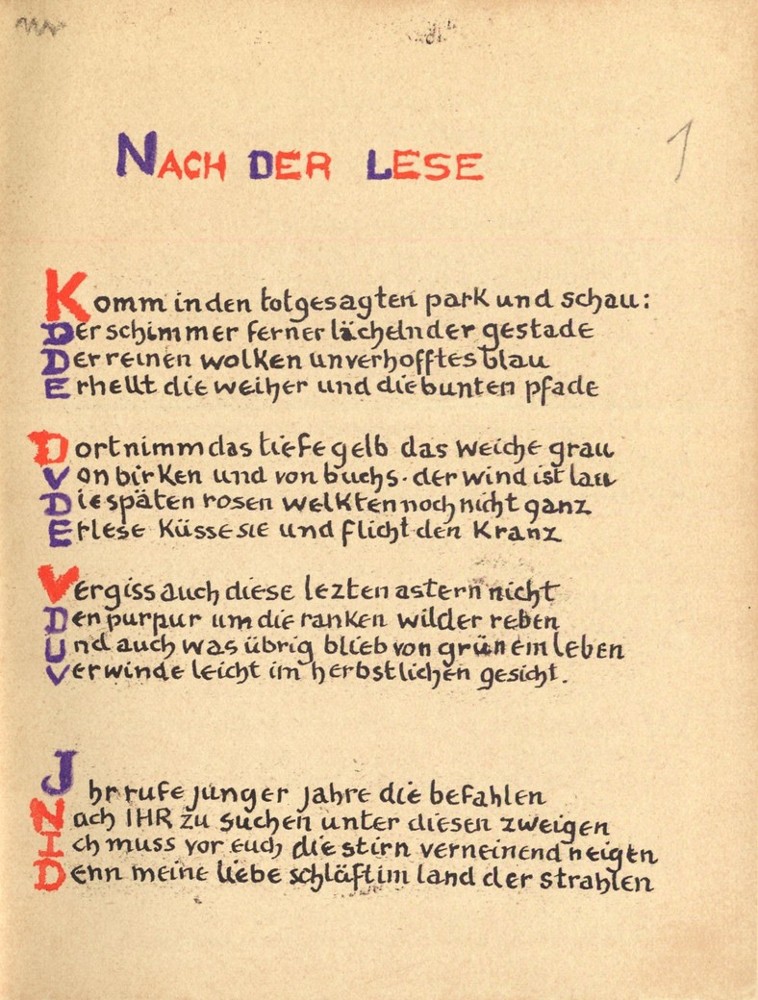 NACH DER LESE
1
Komm in den totgesagten park und schau:
Der schimmer ferner lächelnder gestade
Der reinen wolken unverhofftes blau
Erhellt die weiher und die bunten pfade
Dort nimm das tiefe gelb das weiche grau
Von birken und von buchs· der wind ist lau
Die späten rosen welkten noch nicht ganz
Erlese küsse sie und flicht den kranz
Vergiss auch diese lezten astern nicht
Den purpur um die ranken wilder reben
Und auch was übrig blieb von grünem leben
Verwinde leicht im herbstlichen gesicht.
Ihr rufe junger jahre die befahlen
Nach IHR zu suchen unter diesen zweigen
Ich muss vor euch die stirn verneinend neigen
Denn meine liebe schläft im land der strahlen